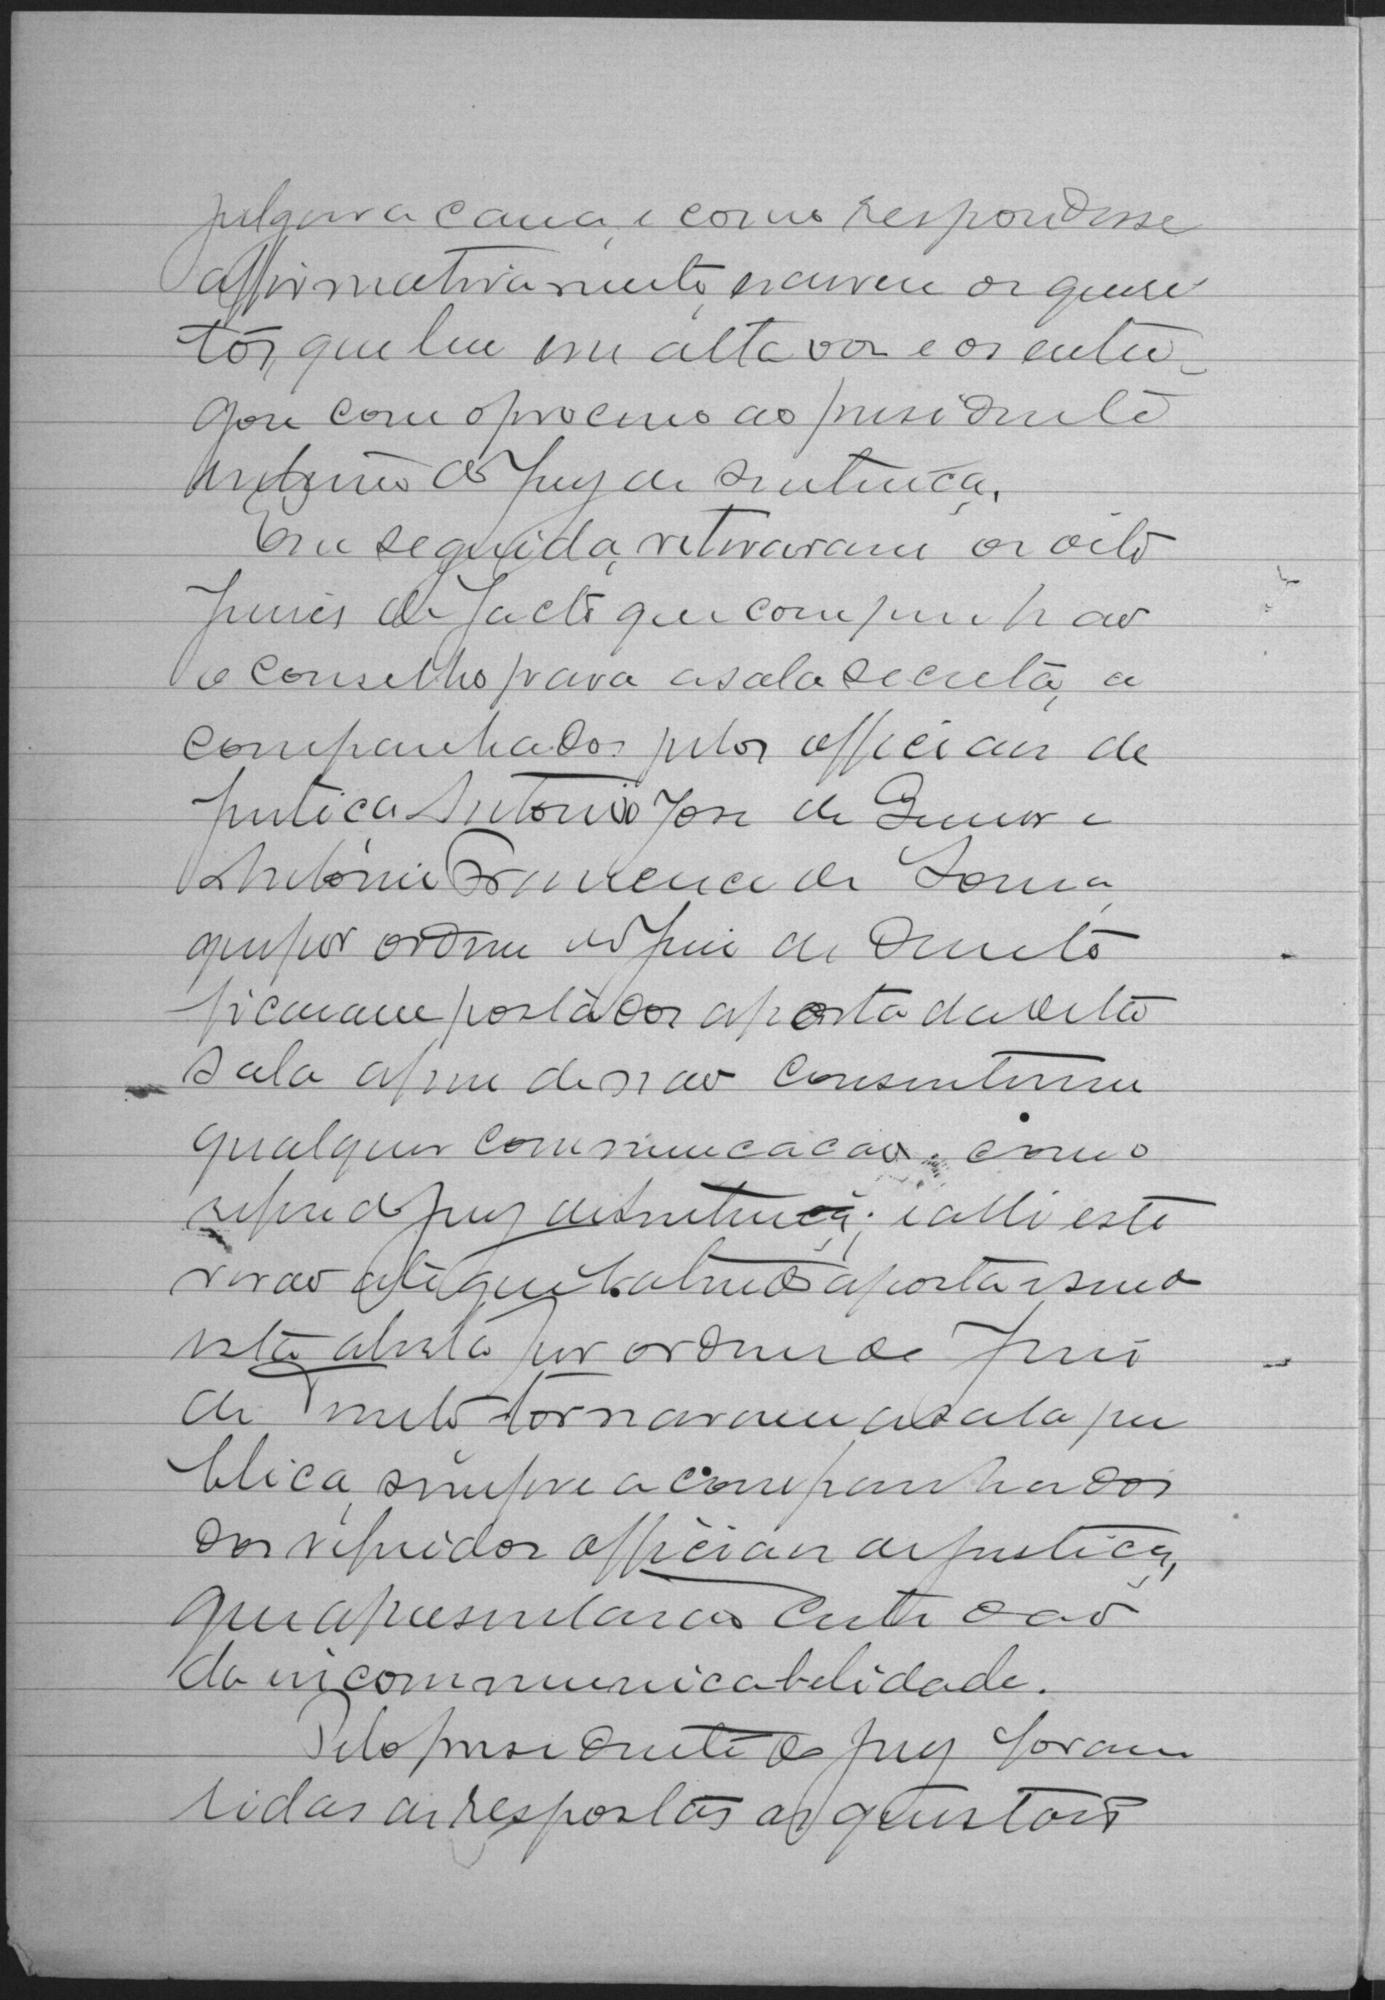 julgar a causa, e como respondesse
affirmativamente, escreveu os quesi
tos, que leu em alta voz e os entre-
gou com o processo ao presidente
interino do jury de sentença.
Em seguida, retiraram os oito
juises de facto que compunhão
o conselho para a sala secreta, a
companhados pelos officiaes de
justiça Antonio José de
Antonio Francisco de Souza,
que por ordem do juiz de direito
ficaram postados a porta da dita
sala afim de não consentirem
qualquer communicação com o
jury de sentença; e alli este
verão até que batendo a porta e sendo
esta aberta por ordem do juiz
de direito tornaram a sala pu
blica, sempre acompanhados
dos referidos officiaes de justiça,
que apresentarão certidão
da incommunicabilidade.
Pelo presidente do jury foram
lidas as respostas as questões